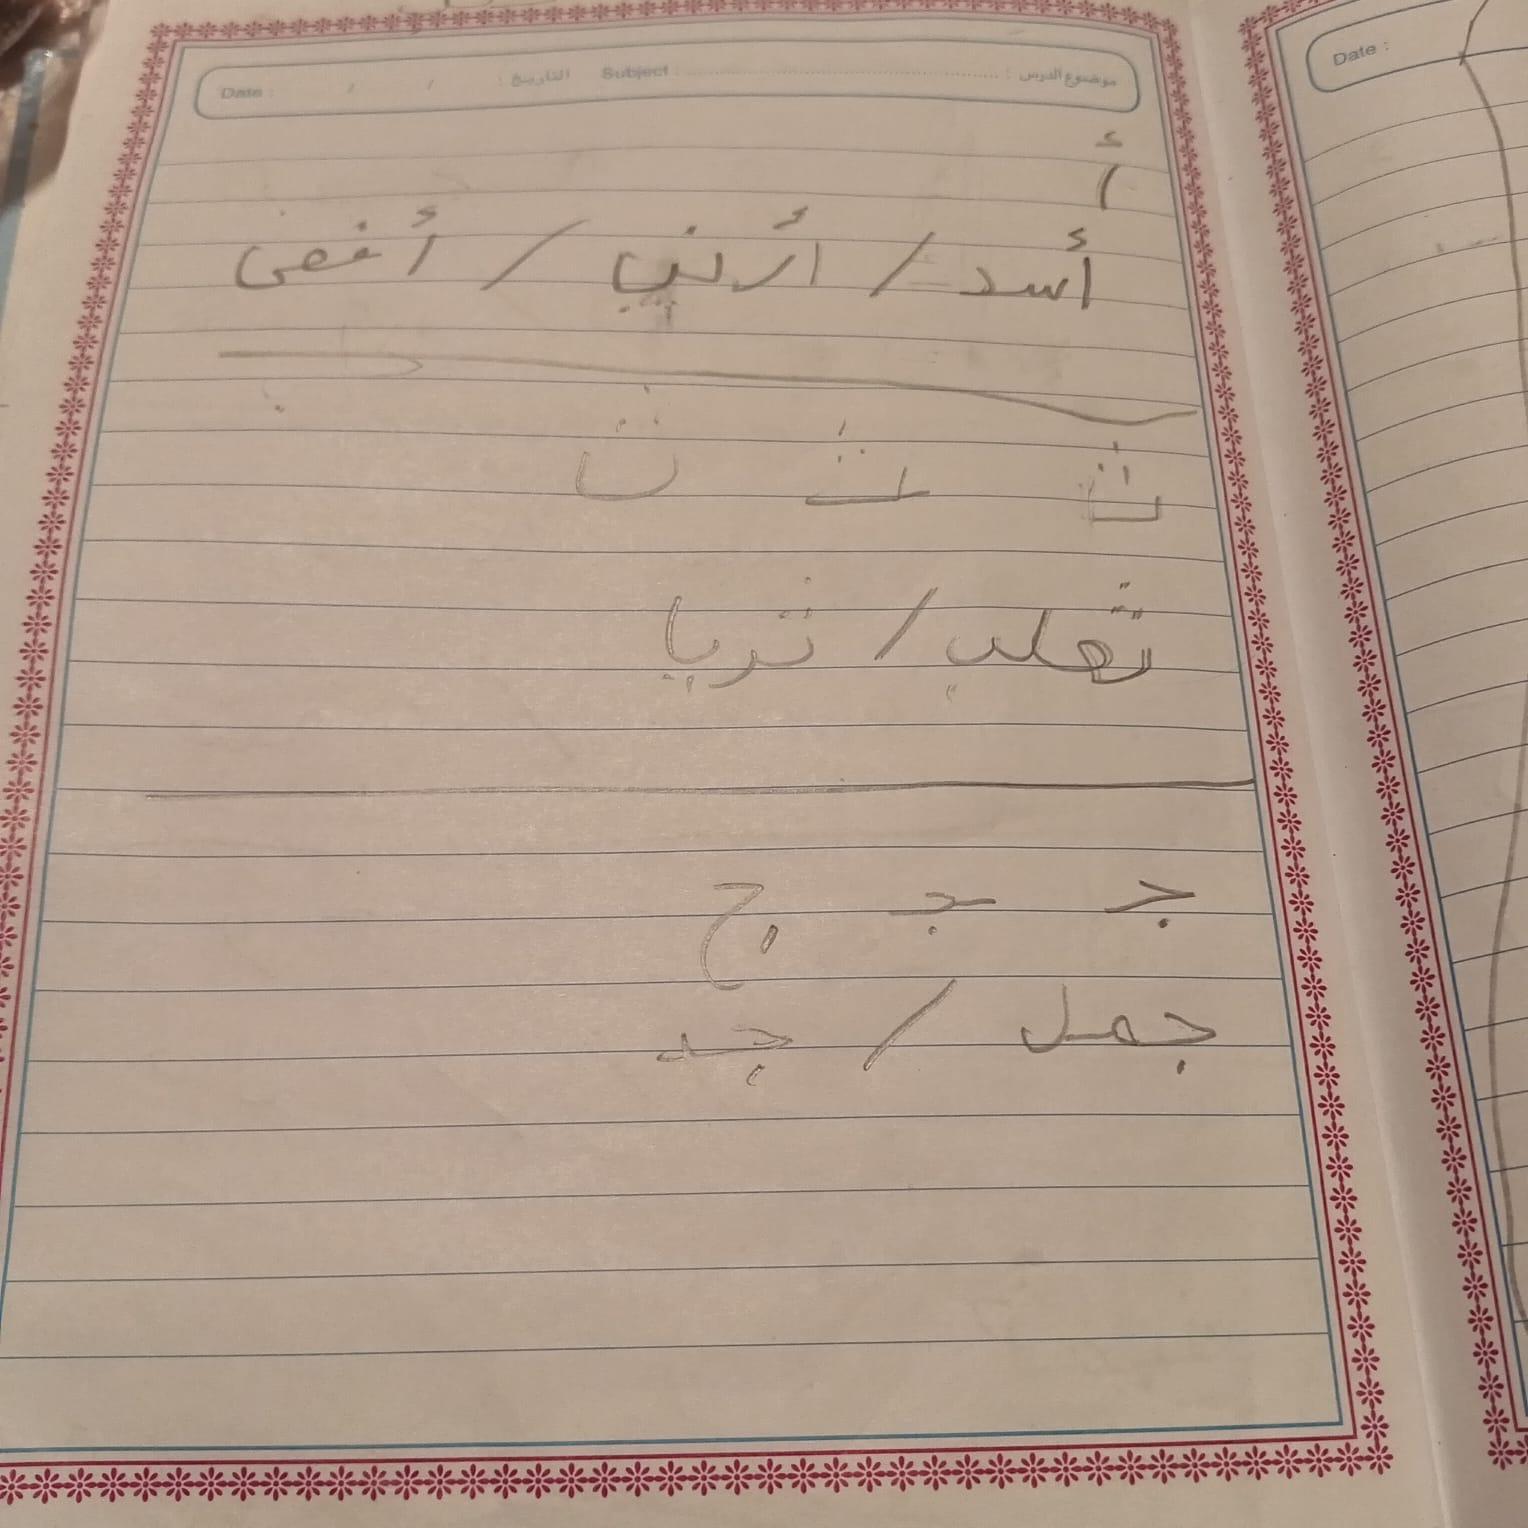 موضوع الدرس : Subject : التاريخ : / / Date :
أ
أسد / أرنب / أفعى
ثـ ـثـ ث
ثعلب / ثريا
جـ ـجـ ج
جمل / جد
Date :